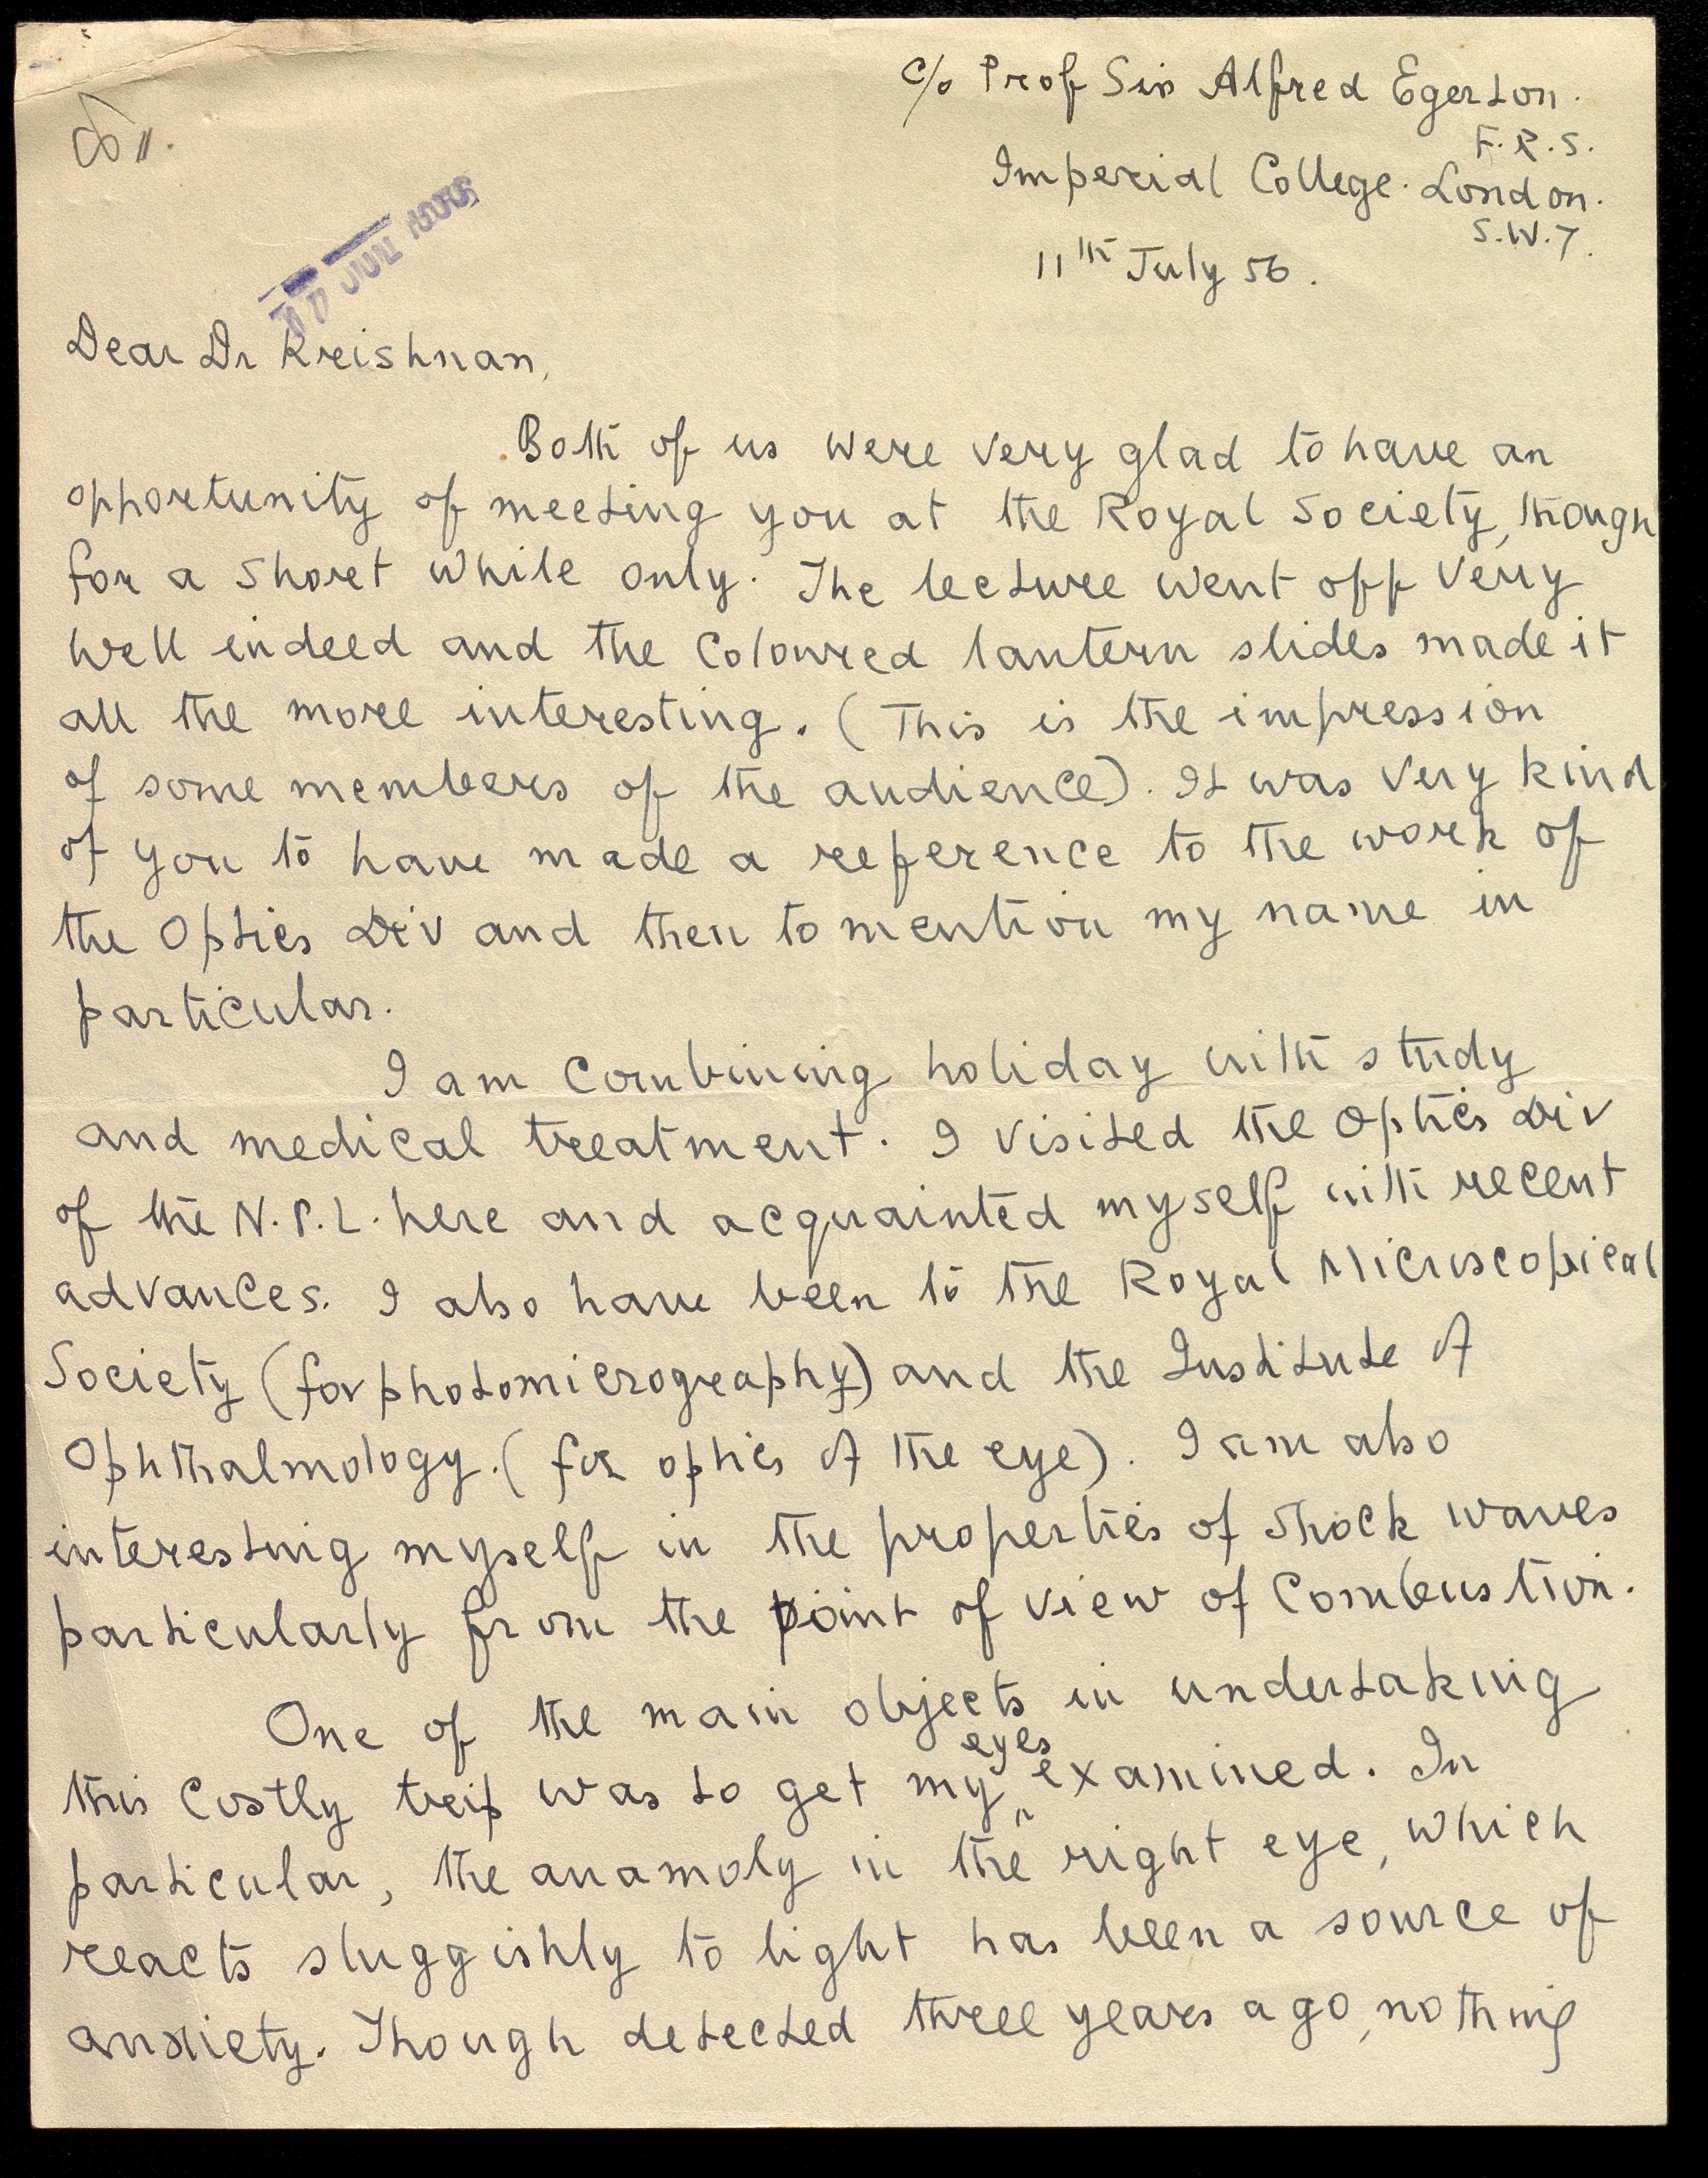 c/o Prof Sir Alfred Egerton.
F.R.S.
Imperial College. London.
S.W.7.
11th July 56.
JUL
Dear Dr Krishnan,
Both of us were very glad to have an
opportunity of meeting you at the Royal Society, though
for a short while only. The lecture went off very
well indeed and the coloured lantern slides made it
all the more interesting. (This is the impression
of some members of the audience). It was very kind
of you to have made a reference to the work of
the Optics Div and then to mention my name in
particular.
I am combining holiday with study
and medical treatment. I visited the Optics Div
of the N.P.L. here and acquainted myself with recent
advances. I also have been to the Royal Microscopical
Society (for photomicrography) and the Institute of
Ophthalmology. (for optics of the eye). I am also
interesting myself in the properties of shock waves
particularly from the point of view of Combustion.
One of the main objects in undertaking
this costly trip was to get my eyes examined. In
particular, the anamoly in the right eye, which
reacts sluggishly to light has been a source of
anxiety. Though detected three years ago, nothing